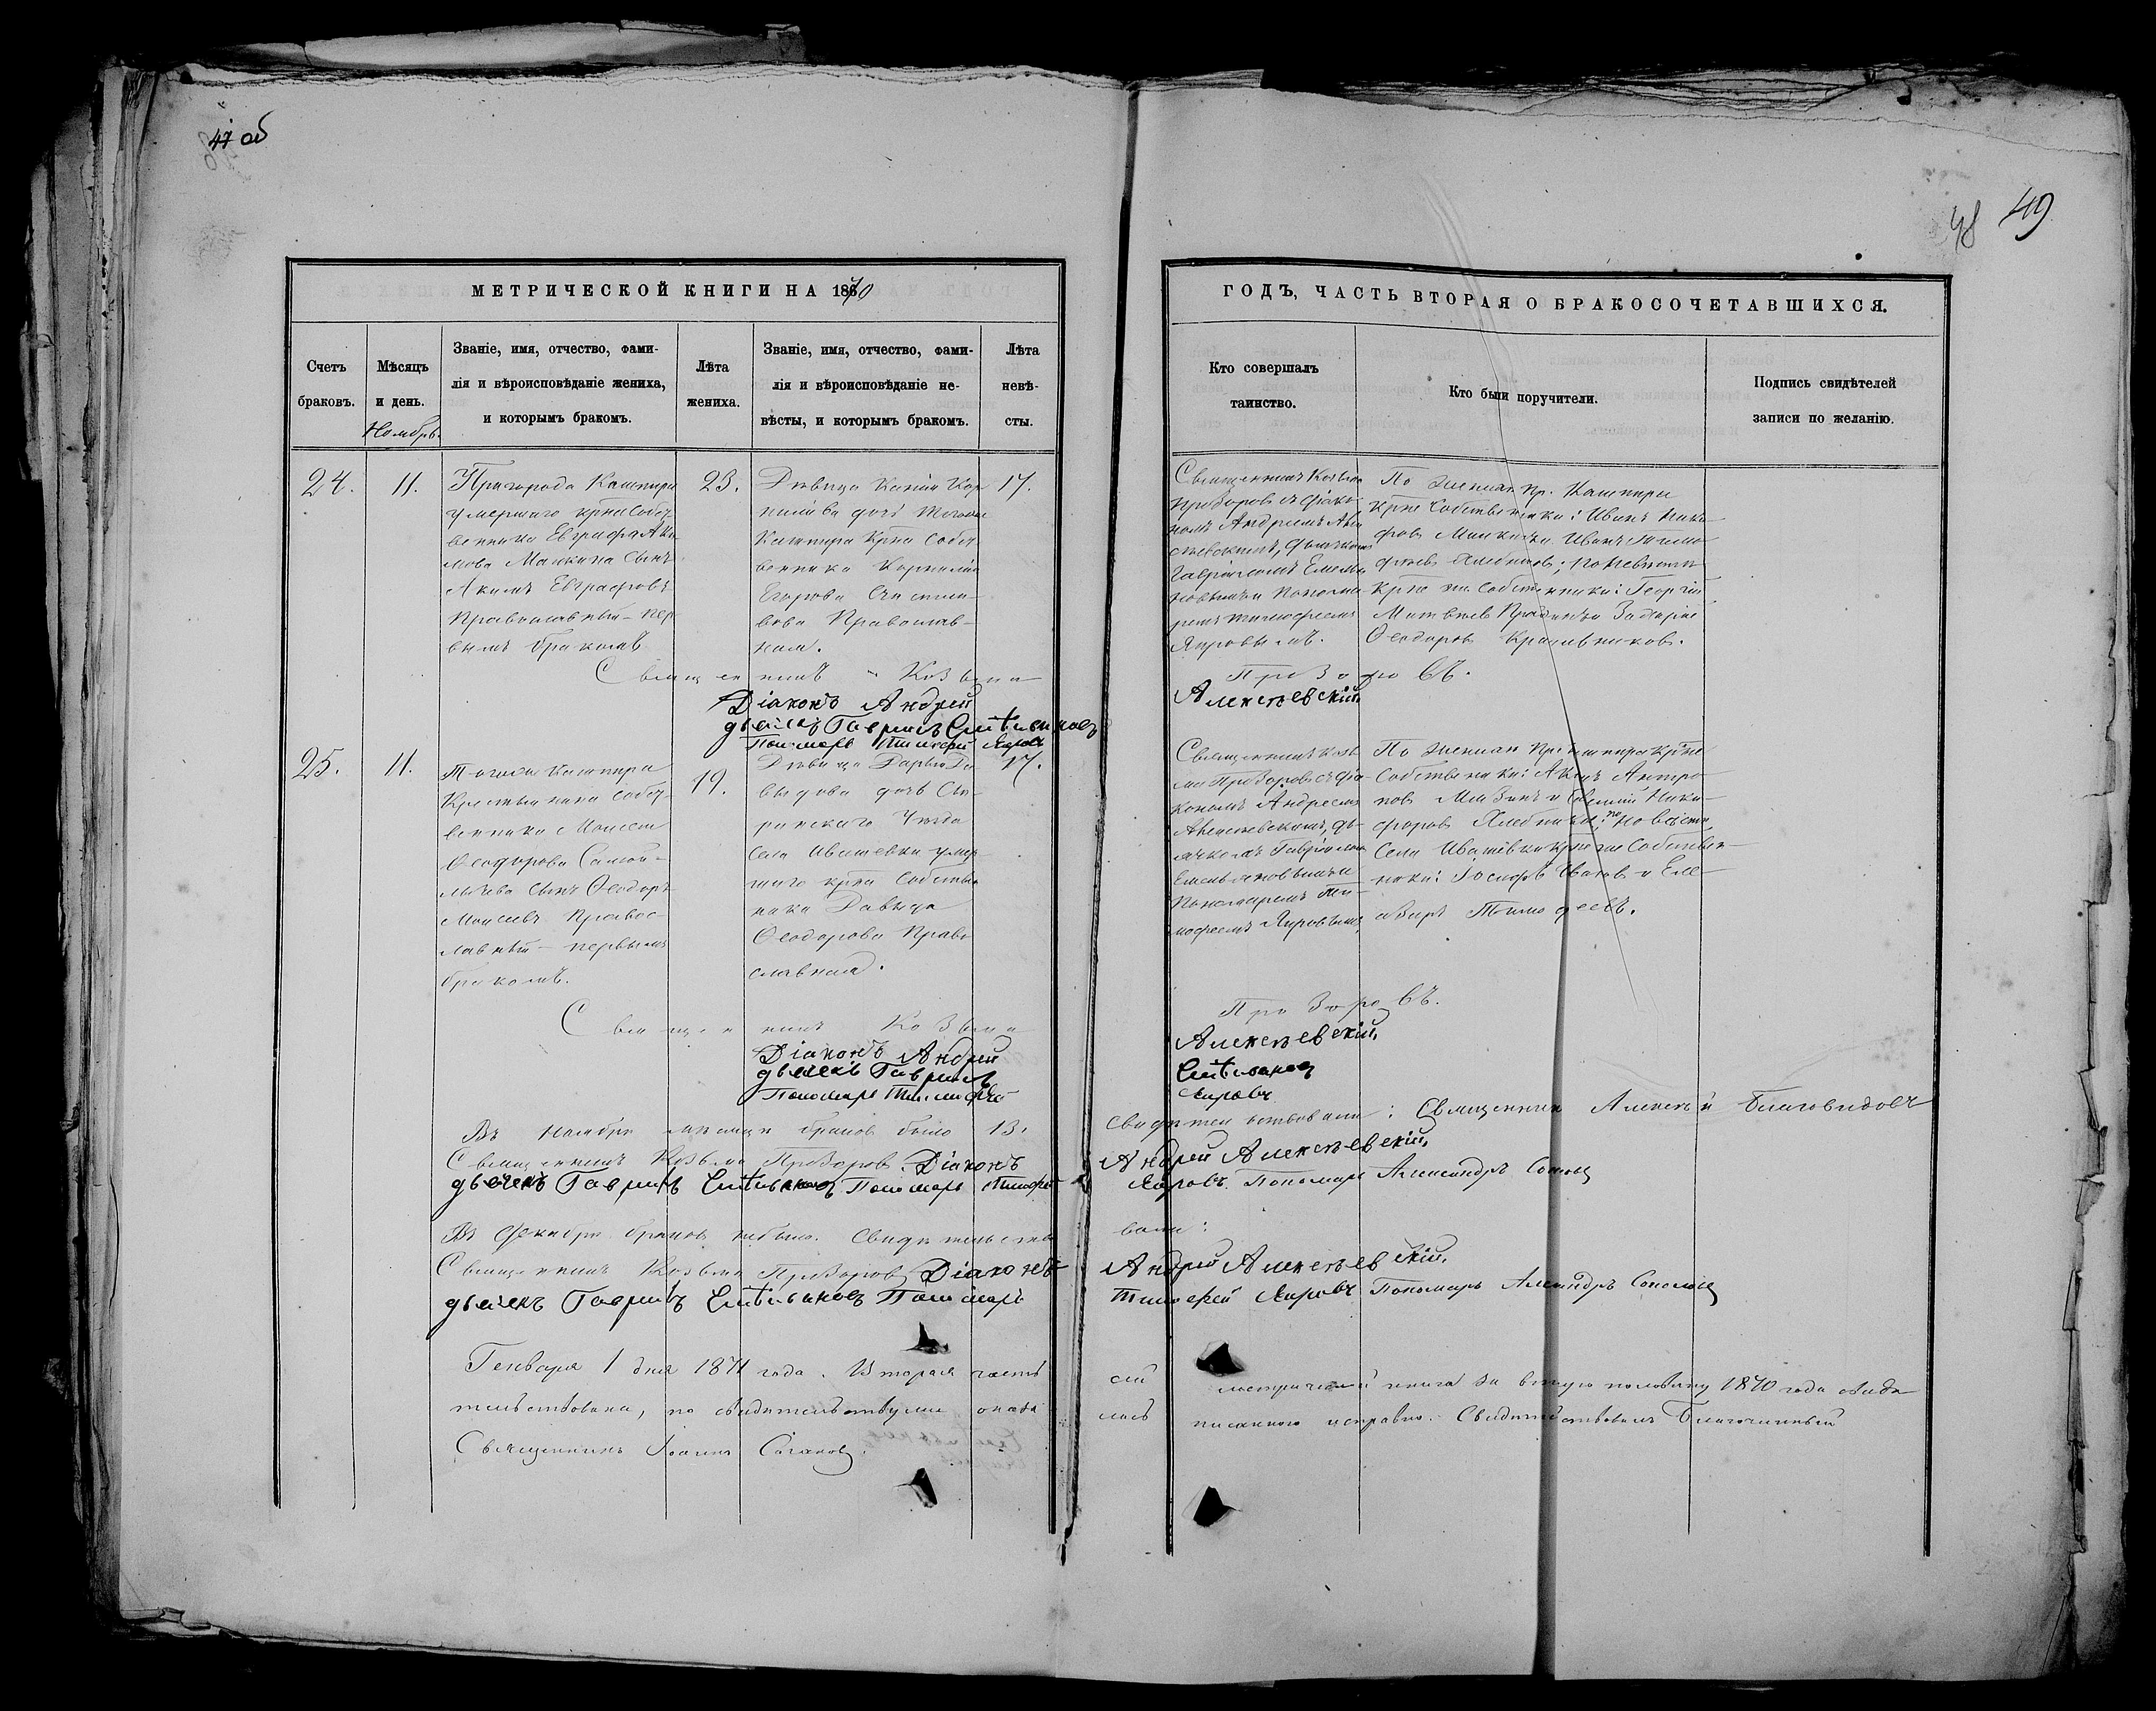 47 об
48 49
МЕТРИЧЕСКОЙ КНИГИ НА 1870
ГОДЪ, ЧАСТЬ ВТОРАЯ О БРАКОСОЧЕТАВШИХСЯ.
Счетъ
браковъ.
Мѣсяцъ
и день.
Ноябрь
Званіе, имя, отчество, фами-
лія и вѣроисповѣданіе жениха,
и которымъ бракомъ.
Лѣта
жениха.
Званіе, имя, отчество, фами-
лія и вѣроисповѣданіе не-
вѣсты, и которымъ бракомъ.
Лѣта
невѣ-
сты.
Кто совершалъ
таинство.
Кто были поручители.
Подпись свидѣтелей
записи по желанію.
24.
11.
Пригорода Кашпира
умершаго крна собст
венника Евграфа Аки
мова Манкина сынъ
Акимъ Евграфовъ
Православный - пер
вымъ бракомъ
23.
Дѣвица Ксенія Кор
нилiева дочь тогоже
Кашпира крна собст
венника Корнилія
Егорова
вова Православ-
ная.
17.
Священникъ Козьма
Прозоровъ съ діако-
номъ Андреемъ Але
ксѣевскимъ, дьячкомъ
Гавріиломъ Емелья
новымъ и понома
ремъ Тимофеемъ
Яировымъ.
По женихѣ пр. Кашпира
крне собственники: Иванъ Ники-
форовъ Манкинъ и Иванъ Тимо-
феевъ Хлебниковъ; по невѣстѣ
крне собственники: Георгій
Матвѣевъ и Захарій
Ѳеодоровъ Красильниковъ.
Священникъ Козьма
Прозоровъ.
Діаконъ Андрей
Алексѣевскій,
дьячекъ Гавріилъ Емельяновъ
Пономарь Тимофей Яировъ
25.
11.
Тогоже Кашпира
Крестьянина собст-
венника Моисея
Ѳеодорова Самой-
лычева сынъ Ѳеодоръ
Моисеевъ правос-
лавный - первымъ
бракомъ.
19.
Дѣвица Дарья Да
выдова дочь Сы-
зранскаго Уѣзда
Села Ивашевки умер-
шаго крна собствен
ника Давыда
Ѳеодорова Право
славная.
17.
Священникъ Козь
ма Прозоровъ съ діа-
кономъ Андреемъ
Алексѣевскимъ, дь-
ячкомъ Гавріиломъ
Емельяновымъ и
Пономаремъ Ти-
мофеемъ Яировымъ
По женихѣ Пр. Кашпира крне
собственники: Акимъ Антро-
повъ Мизинъ и Евгеній Ники-
форовъ Хлебниковъ; по невѣстѣ
Села Ивашевки крне собствен-
ники: Іосифъ Ивановъ и Еле-
азаръ Тимофеевъ.
Священникъ Козьма
Прозоровъ.
Діаконъ Андрей
Алексѣевскій,
дьячекъ Гавріилъ
Емельяновъ
Пономарь Тимофей
Яировъ
Въ Ноябрѣ мѣсяцѣ браковъ было 13.
Свидѣтельствовали: Священникъ Алексѣй Благовидовъ
Священникъ Козьма Прозоровъ Діаконъ
Андрей Алексѣевскій,
дьячекъ Гавріилъ Емельяновъ Пономарь Тимофей
Яировъ. Пономарь Александръ Соколовъ
Въ Декабрѣ браковъ небыло. Свидѣтельство
вали:
Священникъ Козьма Прозоровъ Діаконъ
Андрей Алексѣевскій,
дьячекъ Гавріилъ Емельяновъ Пономарь
Тимофей Яировъ Пономарь Александръ Соколовъ
Генваря 1 дня 1871 года. Вторая часть
сей метрической книги за вторую половину 1870 года свидѣ
тельствована, по свидѣтельству оказа
лась писанною исправно. Свидѣтельствовалъ Благочинный
Священникъ Іоаннъ